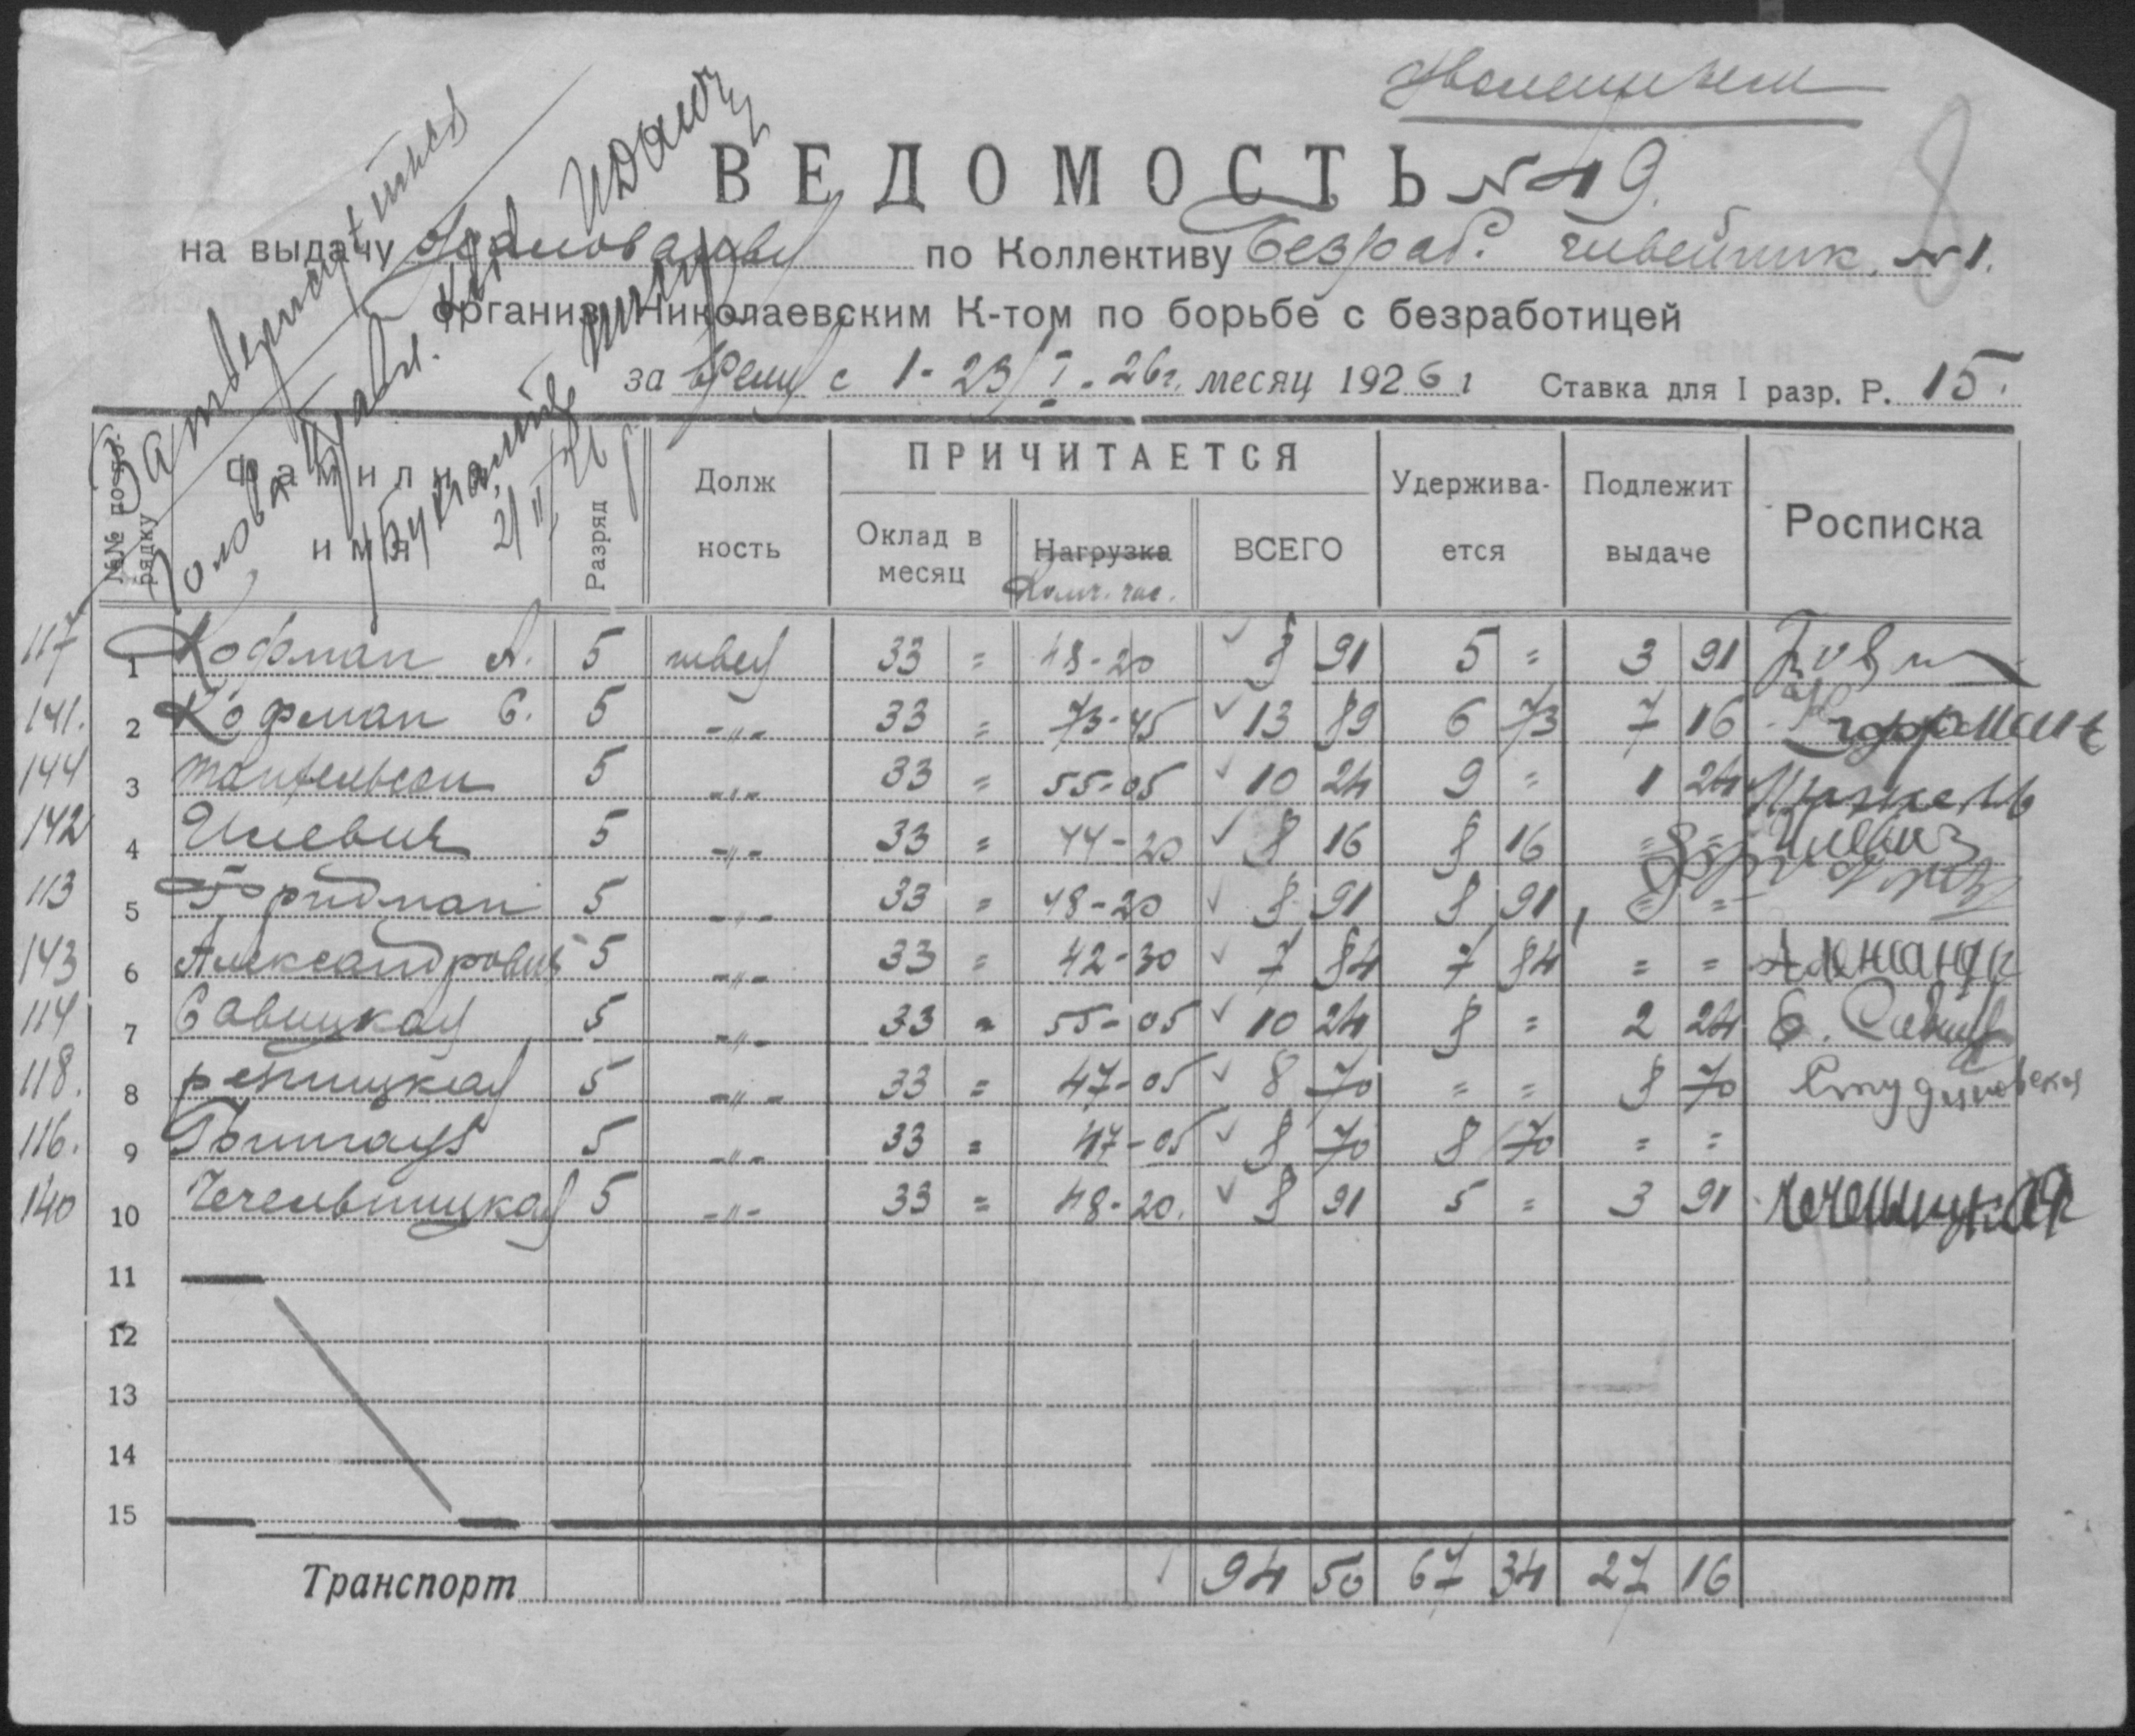 ВЕДОМОСТЬ №19.
8
на выдачу жалования по Коллективу безраб. швейник. №1.
организ. Николаевским К-том по борьбе с безработицей
за время с 1-23/I-26г. месяц 1926 г Ставка для I разр. Р. 15.
№№ по порядку Фамилия и имя Разряд Должность ПРИЧИТАЕТСЯ Удерживается Подлежит выдаче Росписка
Оклад в месяц Нагрузка ВСЕГО
Колич. час.
117 1 Кофман А. 5 швея 33 = 48-20 8 91 5 = 3 91
141. 2 Кофман С. 5 -"- 33 = 73-45 13 89 6 73 7 16
144 3 5 -"- 33 = 55-05 10 24 9 = 1 24
142 4 Илевич 5 -"- 33 = 44-20 8 16 8 16 = =
113 5 Фридман 5 -"- 33 = 48-20 8 91 8 91 = =
143 6 Александрович 5 -"- 33 = 42-30 7 84 7 84 = =
114 7 Савицкая 5 -"- 33 = 55-05 10 24 8 = 2 24
118. 8 5 -"- 33 = 47-05 8 70 = = 8 70
116. 9 5 -"- 33 = 47-05 8 70 8 70 = =
140 10 Чечельницкая 5 -"- 33 = 48-20. 8 91 5 = 3 91
11
12
13
14
15
Транспорт 94 50 67 34 27 16